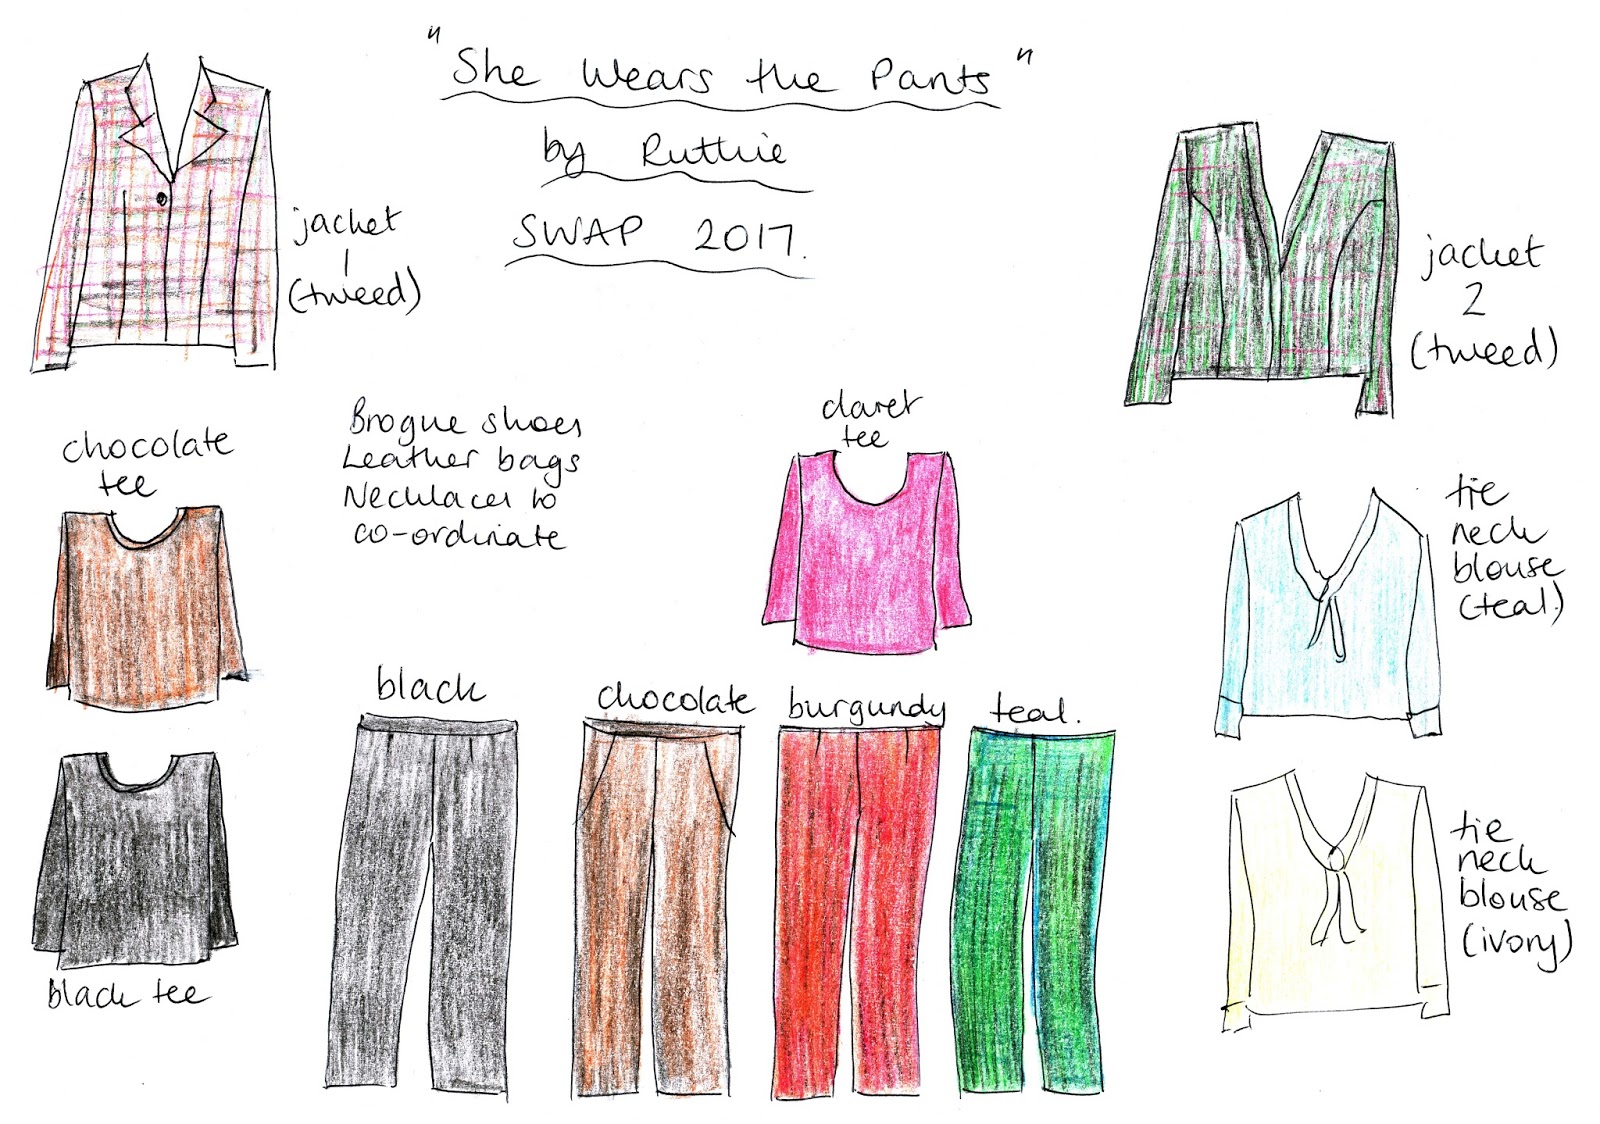 "She Wears the Pants"
by Ruthie
SWAP 2017.
jacket
1
(tweed)
jacket
2
(tweed)
Brogue shoes
Leather bags
Necklaces to
co-ordinate
claret
tee
chocolate
tee
tie
neck
blouse
(teal.)
black
chocolate
burgundy
teal.
tie
neck
blouse
(ivory)
black tee